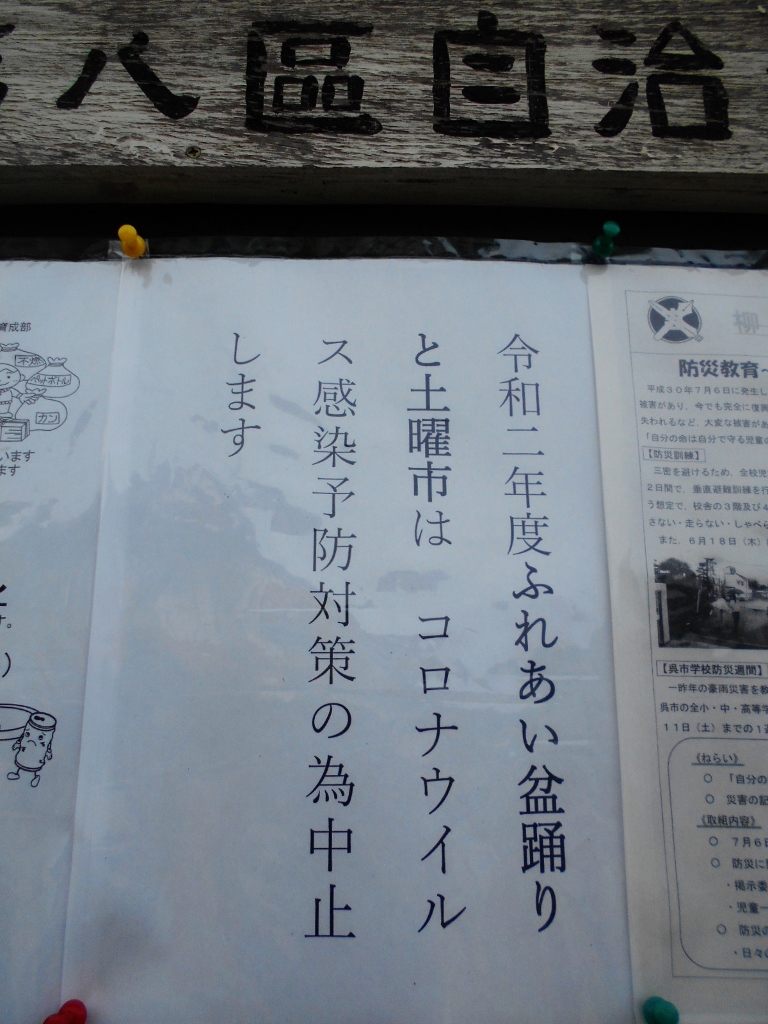 八區自治
令和二年度ふれあい盆踊り
と土曜市は　コロナウイル
ス感染予防対策の為中止
します
育成部
不燃
ペットボトル
カン
います
ます
柳
防災教育～
平成30年7月6日に発生し
被害があり、今でも完全に復興
失われるなど、大変な被害があ
「自分の命は自分で守る児童の
【防災訓練】
三密を避けるため、全校児
2日間で、垂直避難訓練を行
う想定で、校舎の3階及び4
さない・走らない・しゃべら
また、6月18日（木）
【呉市学校防災週間】
一昨年の豪雨災害を教
呉市の全小・中・高等学
11日（土）までの1週
《ねらい》
○「自分の
○ 災害の記
《取組内容》
○ 7月6日
○ 防災に
・掲示委
・児童一
○ 防災の
・日々の